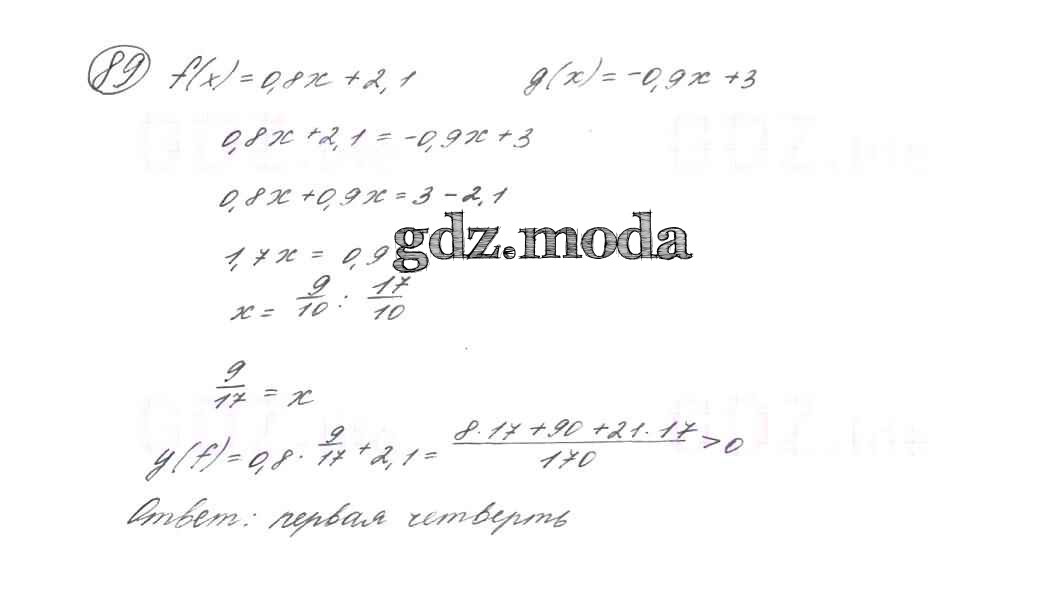 89 f(x) = 0,8x + 2,1 g(x) = -0,9x + 3
0,8x + 2,1 = -0,9x + 3
0,8x + 0,9x = 3 - 2,1
1,7x = 0,9
gdz.moda
x = 9/10 : 17/10
9/17 = x
y(f) = 0,8 · 9/17 + 2,1 = (8·17 + 90 + 21·17)/170 > 0
Ответ: первая четверть